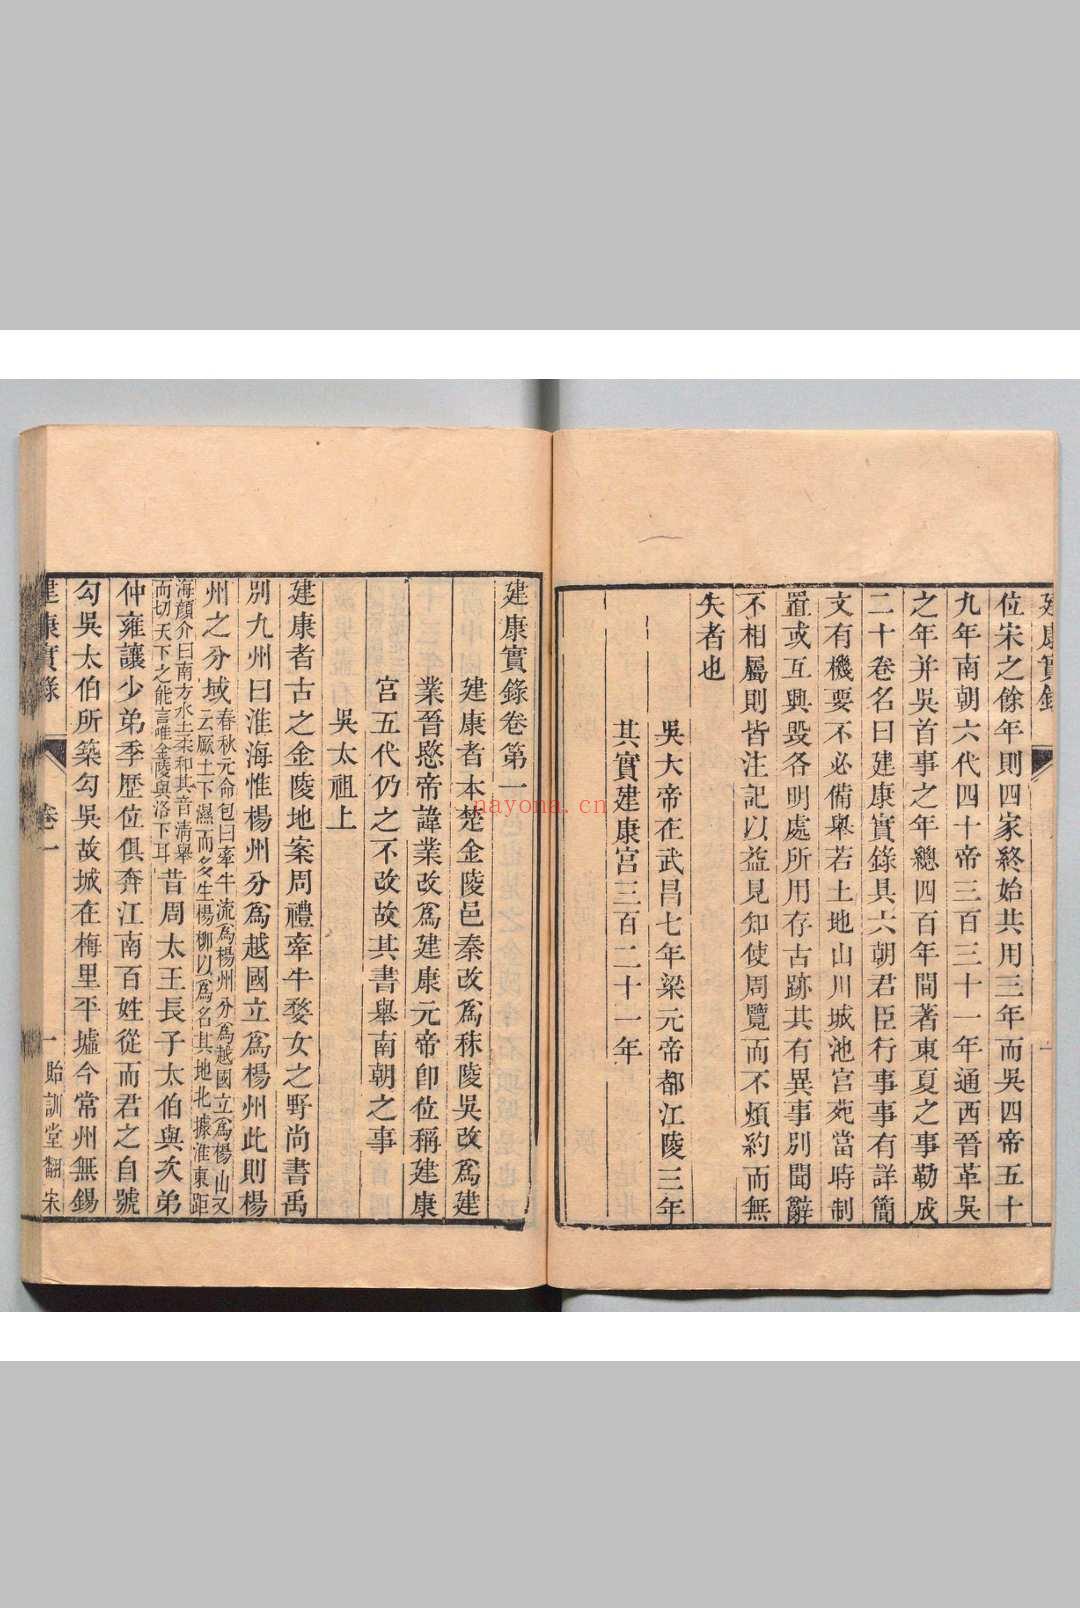 建康實錄
位宋之餘年則四家終始共用三年而吳四帝五十
九年南朝六代四十帝三百三十一年通西晉革吳
之年并吳首事之年總四百年間著東夏之事勒成
二十卷名曰建康實錄具六朝君臣行事事有詳簡
文有機要不必備舉若土地山川城池宮苑當時制
置或互興毀各明處所用存古跡其有異事別聞辭
不相屬則皆注記以益見知使周覽而不煩約而無
失者也
吳大帝在武昌七年梁元帝都江陵三年
其實建康宮三百二十一年
建康實錄卷第一
建康者本楚金陵邑秦改爲秣陵吳改爲建
業晉愍帝諱業改爲建康元帝卽位稱建康
宮五代仍之不改故其書舉南朝之事
吳太祖上
建康者古之金陵地案周禮牽牛婺女之野尚書禹
別九州曰淮海惟楊州分爲越國立爲楊州此則楊
州之分域春秋元命包曰牽牛流爲楊州分爲越國立爲楊山又
云厥土下濕而多生楊柳以爲名其地北據淮東距
海顏介曰南方水土柔和其音清舉
而切天下之能言唯金陵與洛下耳昔周太王長子太伯與次弟
仲雍讓少弟季歷位俱奔江南百姓從而君之自號
勾吳太伯所築勾吳故城在梅里平墟今常州無錫
建康實錄 卷一 一 貽訓堂翻宋
nayona.cn